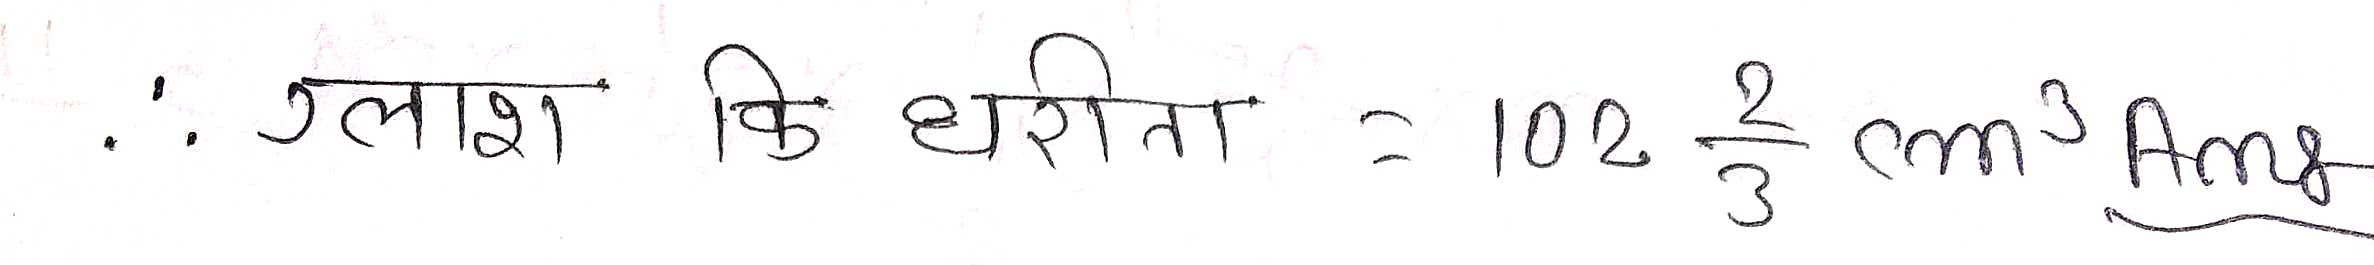 ∴ ग्लाश कि धरीता = 102 2/3 cm³ Ans